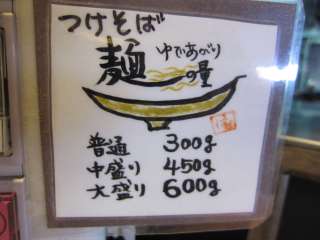 つけそば
麺 ゆであがり
の量
普通 300g
中盛り 450g
大盛り 600g